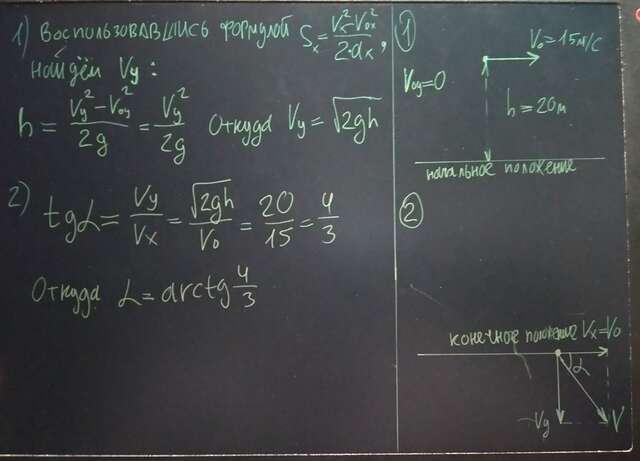 1) Воспользовавшись формулой Sₓ = (Vₓ² - V₀ₓ²)/(2·aₓ),
найдём Vy :
h = (Vy² - V₀y²)/2g = Vy²/2g Откуда Vy = √2gh
2) tgα = Vy/Vₓ = √2gh/V₀ = 20/15 = 4/3
Откуда α = arctg 4/3
1
V₀ = 15м/с
V₀y = 0
h = 20м
начальное положение
2
конечное положение Vₓ = V₀
α
Vy
V